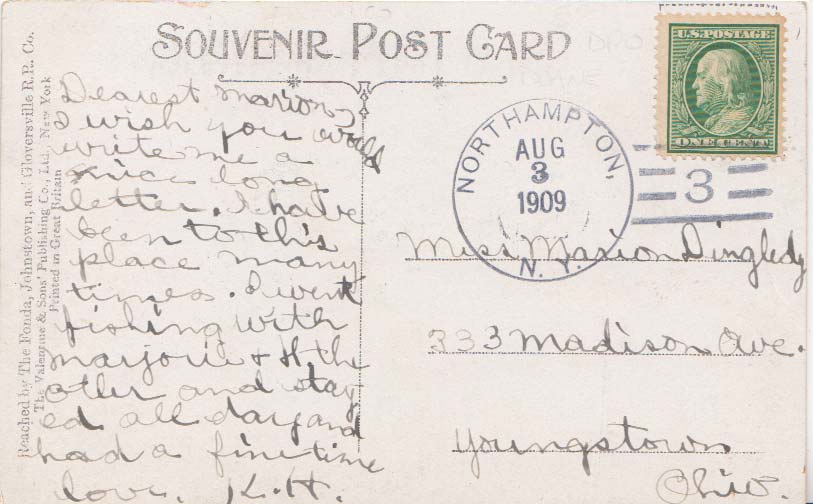 SOUVENIR POST CARD
Reached by The Fonda, Johnstown, and Gloversville R.R. Co.
The Valentine & Sons' Publishing Co., Ltd., New York
Printed in Great Britain
Dearest Marion,
I wish you would
write me a
nice long
letter. I have
been to this
place many
times. I went
fishing with
Marjorie & H the
other and stay
ed all day and
had a fine time
love. K.H.
U.S. POSTAGE
ONE CENT
NORTHAMPTON,
AUG
3
1909
N.Y.
3
Miss Marion Dingledy
333 Madison Ave.
Youngstown
Ohio.